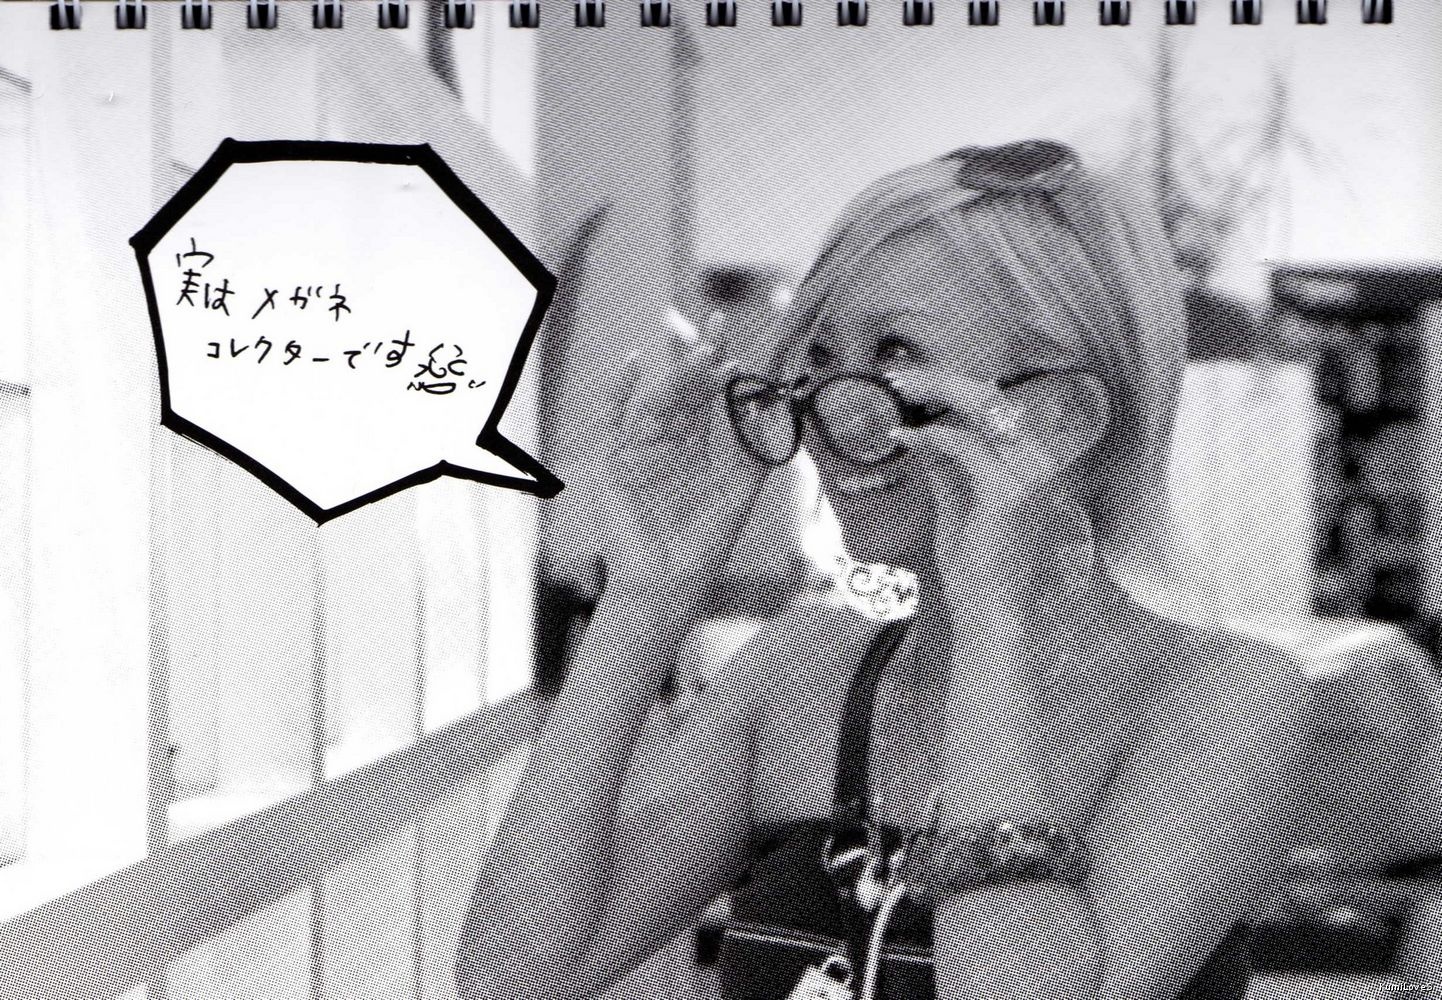 実は メガネ
コレクターです
kumiLoves